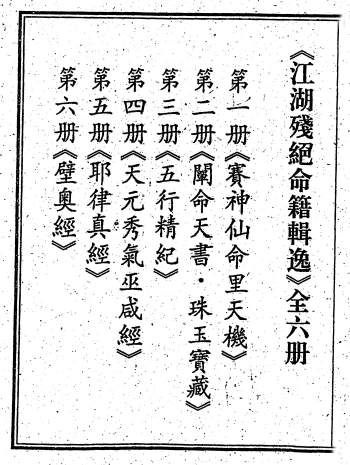 《江湖殘絕命籍輯逸》全六册
第一册《賽神仙命里天機》
第二册《闡命天書·珠玉寶藏》
第三册《五行精紀》
第四册《天元秀氣巫咸經》
第五册《耶律真經》
第六册《壁奧經》